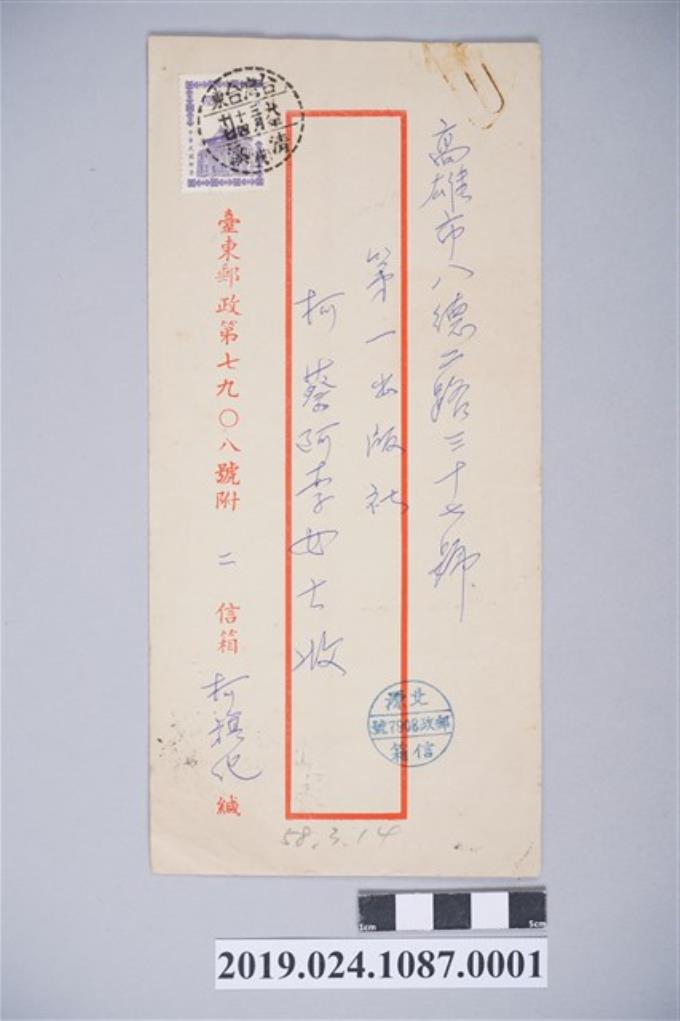 高雄市八德二路三十七號
第一出版社
柯蔡阿李女士收
臺東郵政第七九〇八號附二信箱
柯旗化緘
台灣台東
清溪
北源
郵政7908號
信箱
58.3.14
1cm
5cm
2019.024.1087.0001